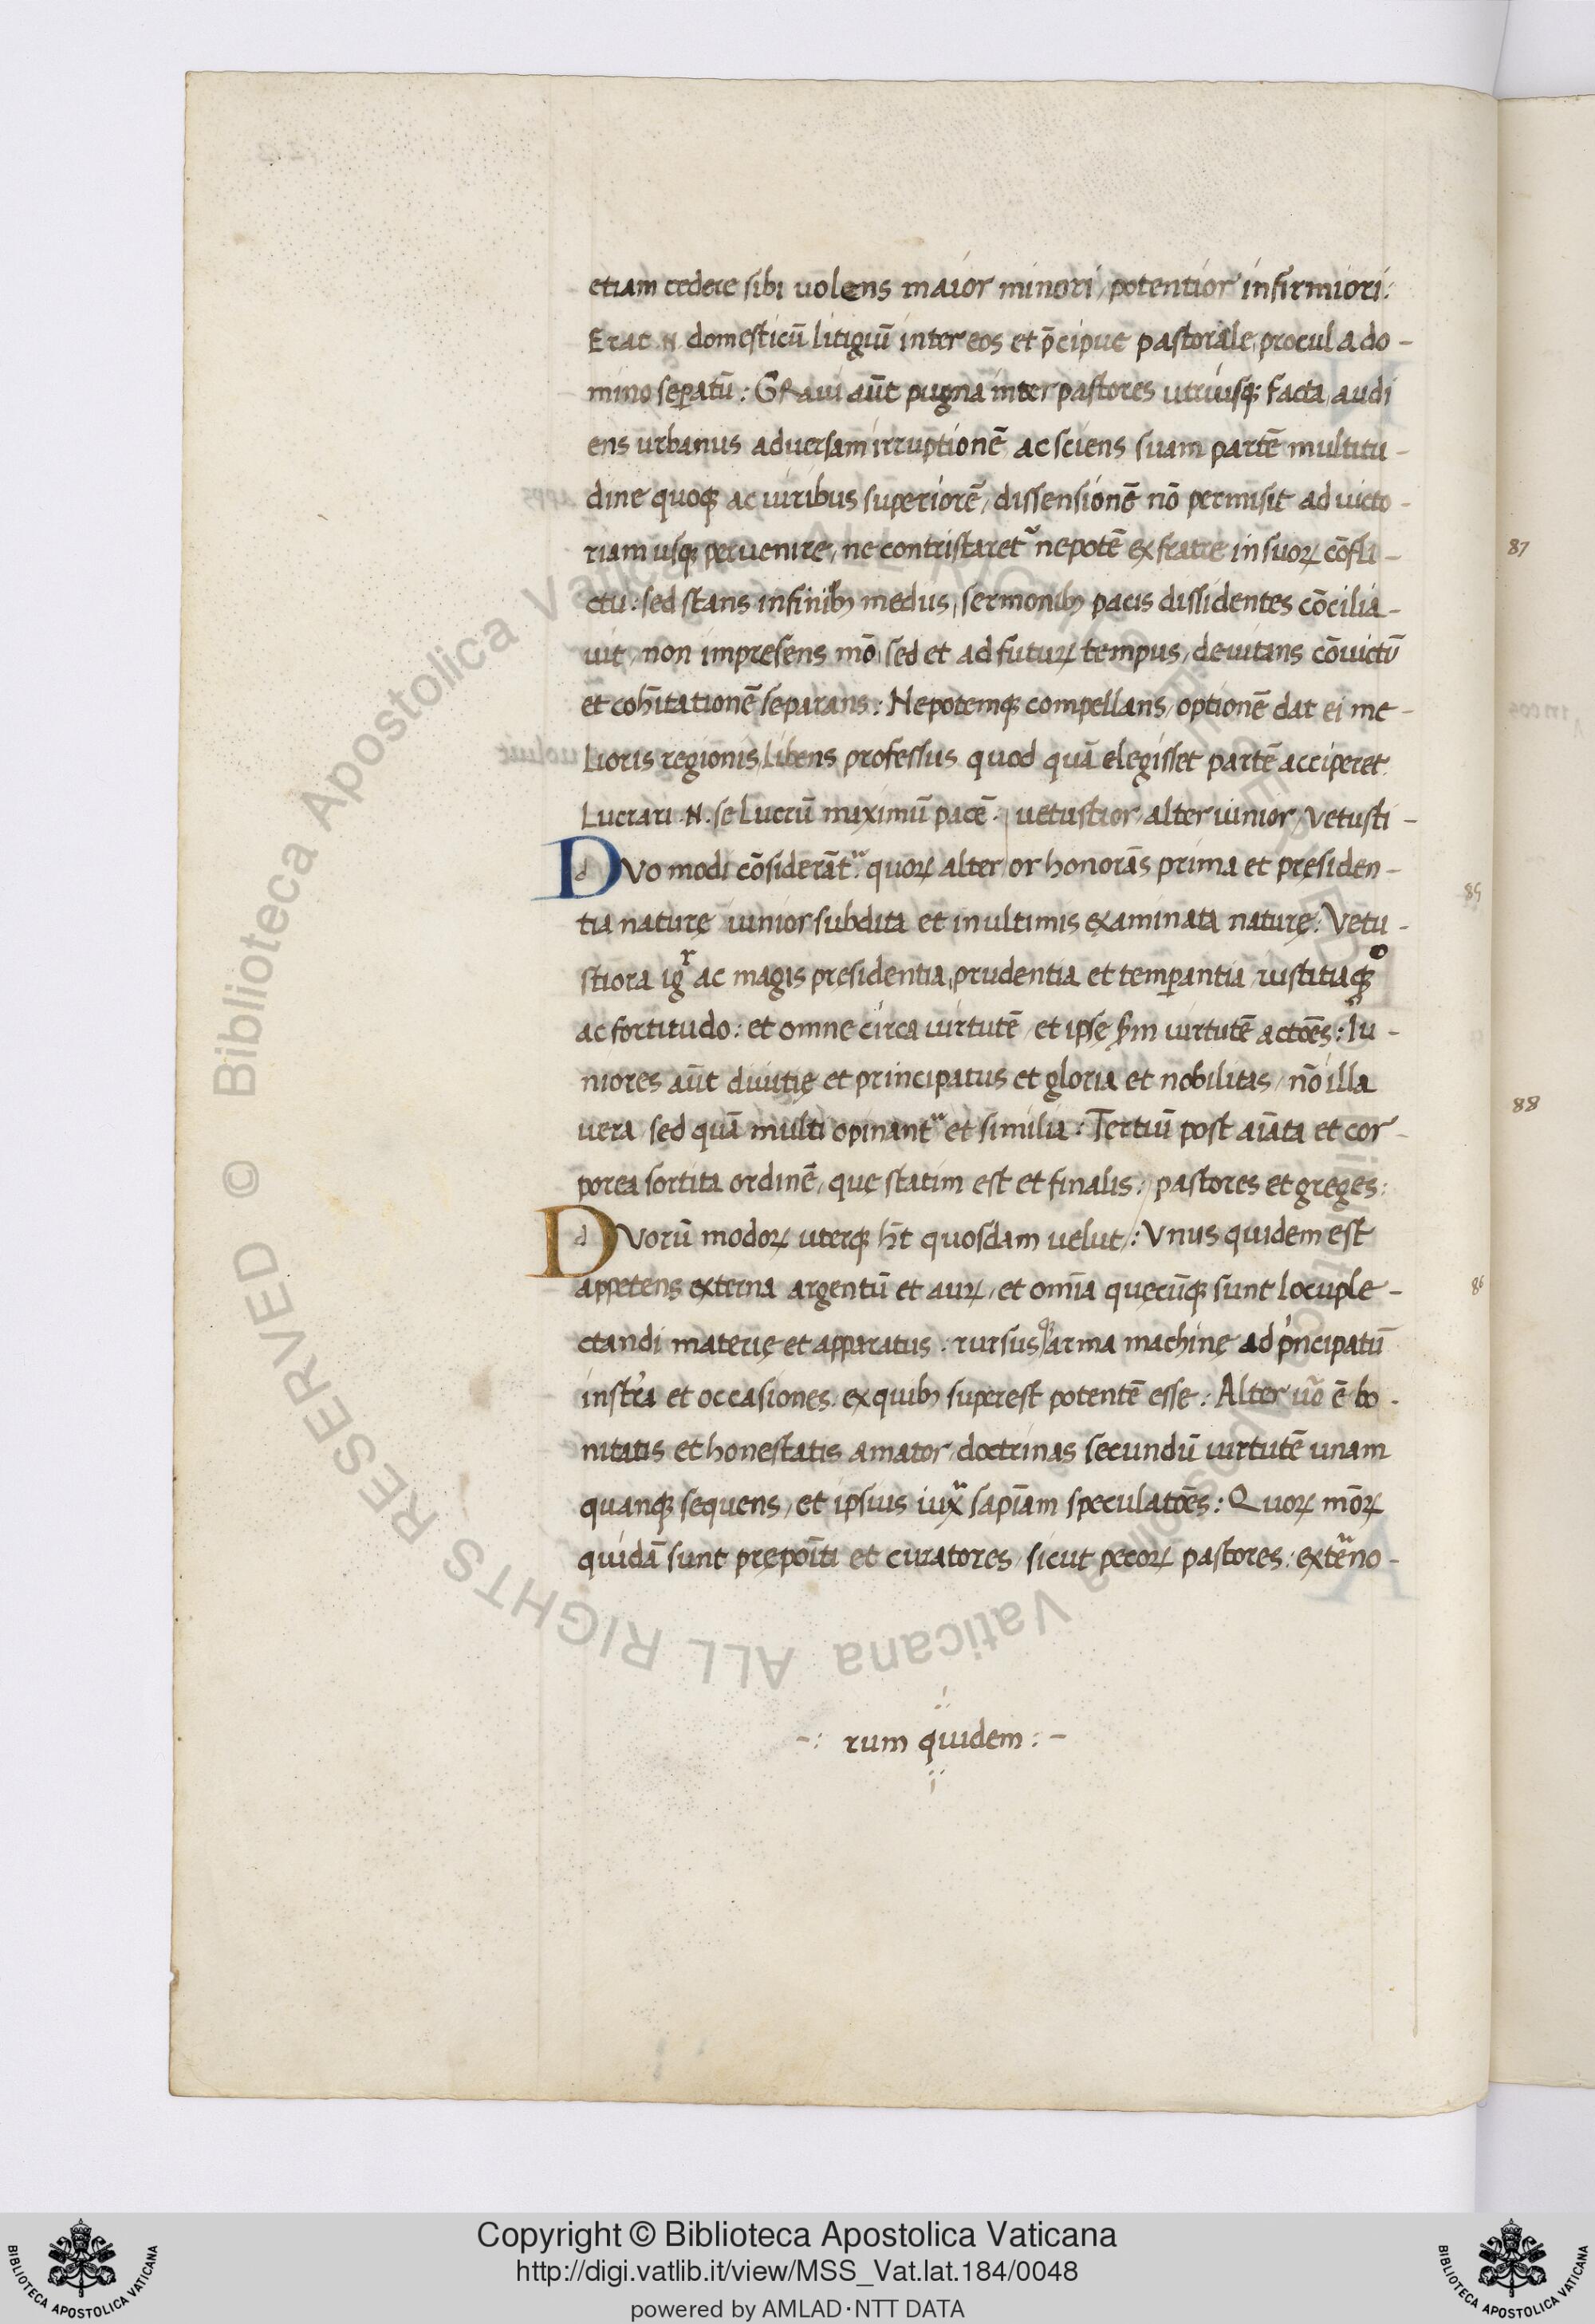 etiam cedere sibi uolens maior minori, potentior infirmiori:
Erat .N. domesticũ litigiũ inter eos et p̃cipue pastorale, procul a do-
mino sep̱atũ: GRaui aũt pugna inter pastores utriusq; facta, audi
ens urbanus aduersam irruptionẽ ac sciens suam partẽ multitu-
dine quoq; ac uiribus superiorẽ, dissensionẽ nõ permisit ad uicto-
riam usq; peruenire, ne contristaretᵘ nepotẽ ex fratre in suoꝝ cõfli-
ctu: sed stans in finibꝫ medus, sermonibꝫ pacis dissidentes cõcilia-
uit, non impresens mõ, sed et ad futuꝝ tempus, deuitans cõuictũ
et coh̃itationẽ separans: Nepotemq; compellans, optionẽ dat ei me-
lioris regionis, libens professus quod quã elegisset partẽ acciperet
Lucrari .N. se lucrũ maximũ pacẽ. uetustior, alter iunior, Vetusti-
DVo modi cõsiderãtᵘʳ quoꝝ alter or honorãs prima et presiden-
tia naturę iunior subdita et in ultimis examinata naturę: Vetu-
stiora igʳ ac magis presidentia, prudentia et temp̱antia iustitiaq;
ac fortitudo: et omne circa uirtutẽ et ipsę s̃m uirtutẽ actões: Iu-
niores aũt diuitię et principatus et gloria et nobilitas, nõ illa
uera, sed quã multi opinantᵘʳ et similia: Tertiũ post aĩata et cor-
porea sortita ordinẽ, que statim est et finalis: pastores et greges:
DVorũ modoꝝ uterq; h̃t quosdam uelut: Vnus quidem est
appetens externa argentũ et auꝝ, et om̃ia quęcũq; sunt locuple-
ctandi materię et apparatus. rursus arma machinę ad p̍ncipatũ
instr̃a et occasiones ex quibꝫ superest potentẽ esse: Alter ũo ẽ bo-
nitatis et honestatis amator, doctrinas secundũ uirtutẽ unam
quanq; sequens, et ipsius iuxᵃ sap̃iam speculatões: Quoꝝ mõꝝ
quidã sunt prępoĩti et curatores, sicut pecoꝝ pastores: exterᵃno-
-: rum quidem: -
87
85
88
86
Copyright © Biblioteca Apostolica Vaticana
http://digi.vatlib.it/view/MSS_Vat.lat.184/0048
powered by AMLAD·NTT DATA
BIBLIOTECA APOSTOLICA VATICANA
BIBLIOTECA APOSTOLICA VATICANA
© Biblioteca Apostolica Vaticana ALL RIGHTS RESERVED